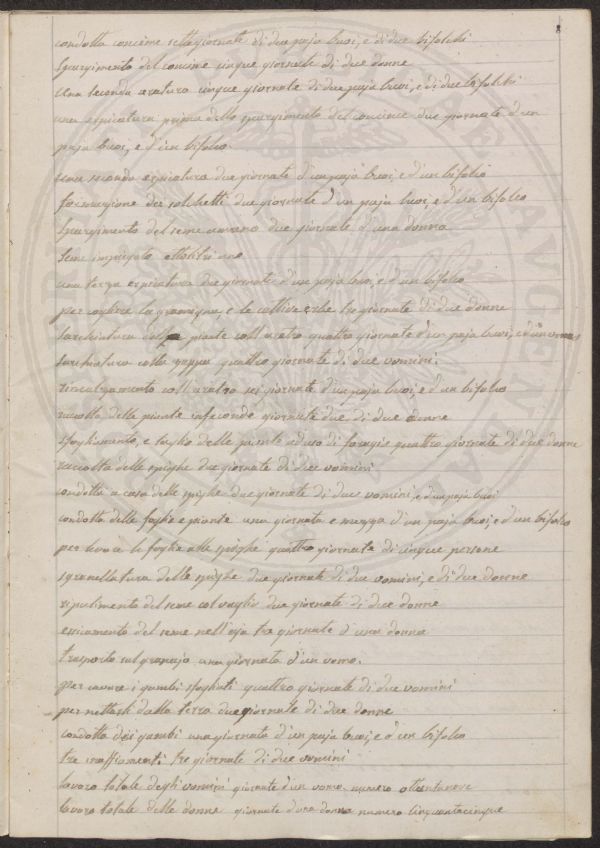 8
condotta concime sette giornate di due paja buoi, e di due bifolchi
Spargimento del concime cinque giornate di due donne
una seconda aratura cinque giornate di due paja buoi, e di due bifolchi
una erpicatura prima dello spargimento del concime due giornate d'un
paja buoi, e d'un bifolco.
una seconda erpicatura due giornate d'un paja buoi, e d'un bifolco
formazione dei solchetti due giornate d'un paja buoi, e d'un bifolco
Spargimento del seme a mano due giornate d'una donna
Seme impiegato ettolitri uno
una terza erpicatura due giornate d'un paja buoi, e d'un bifolco
per togliere la gramigna, e le cattive erbe tre giornate di due donne
Sarchiatura delle piante coll'aratro quattro giornate d'un paja buoi, e d'un uomo
Sarchiatura colla zappa quattro giornate di due uomini.
rincalzamento coll'aratro sei giornate d'un paja buoi, e d'un bifolco
raccolta delle piante infeconde giornate due di due donne
Sfogliamento, e taglio delle piante ad uso di foragio quattro giornate di due donne
raccolta delle spighe due giornate di due uomini
condotta a casa delle spighe due giornate di due uomini, e d'un paja buoi
condotta delle foglie e piante una giornata e mezza d'un paja buoi, e d'un bifolco
per levare le foglie alle spighe quattro giornate di cinque persone
sgranellatura delle spighe due giornate di due uomini, e di due donne
ripulimento del seme col vaglio due giornate di due donne
essicamento del seme nell'aja tre giornate d'una donna
trasporto sul granajo una giornata d'un uomo.
per cavare i gambi sfogliati quattro giornate di due uomini
per nettarli dalla terra due giornate di due donne
condotta dei gambi una giornata d'un paja buoi, e d'un bifolco
tre inaffiamenti tre giornate di due uomini
lavoro totale degli uomini giornate d'un uomo numero ottantanove
lavoro totale delle donne giornate d'una donna numero cinquantacinque